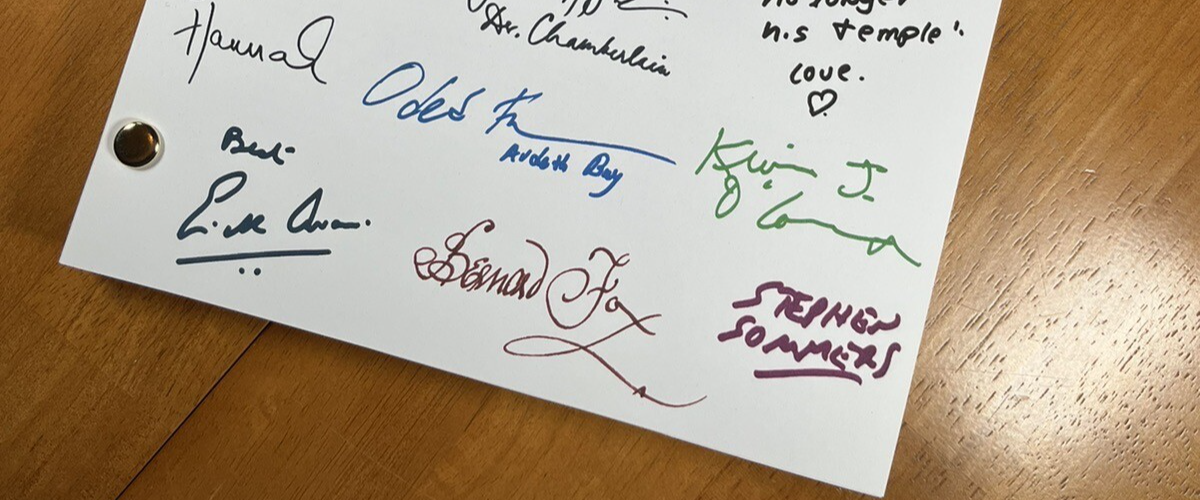 no longer
his temple".
Love.
Dr. Chamberlain
Hannah
Oded Fe
Ardeth Bay
Kevin J.
O'Connor
Best
Bernard Fox
STEPHEN
SOMMERS